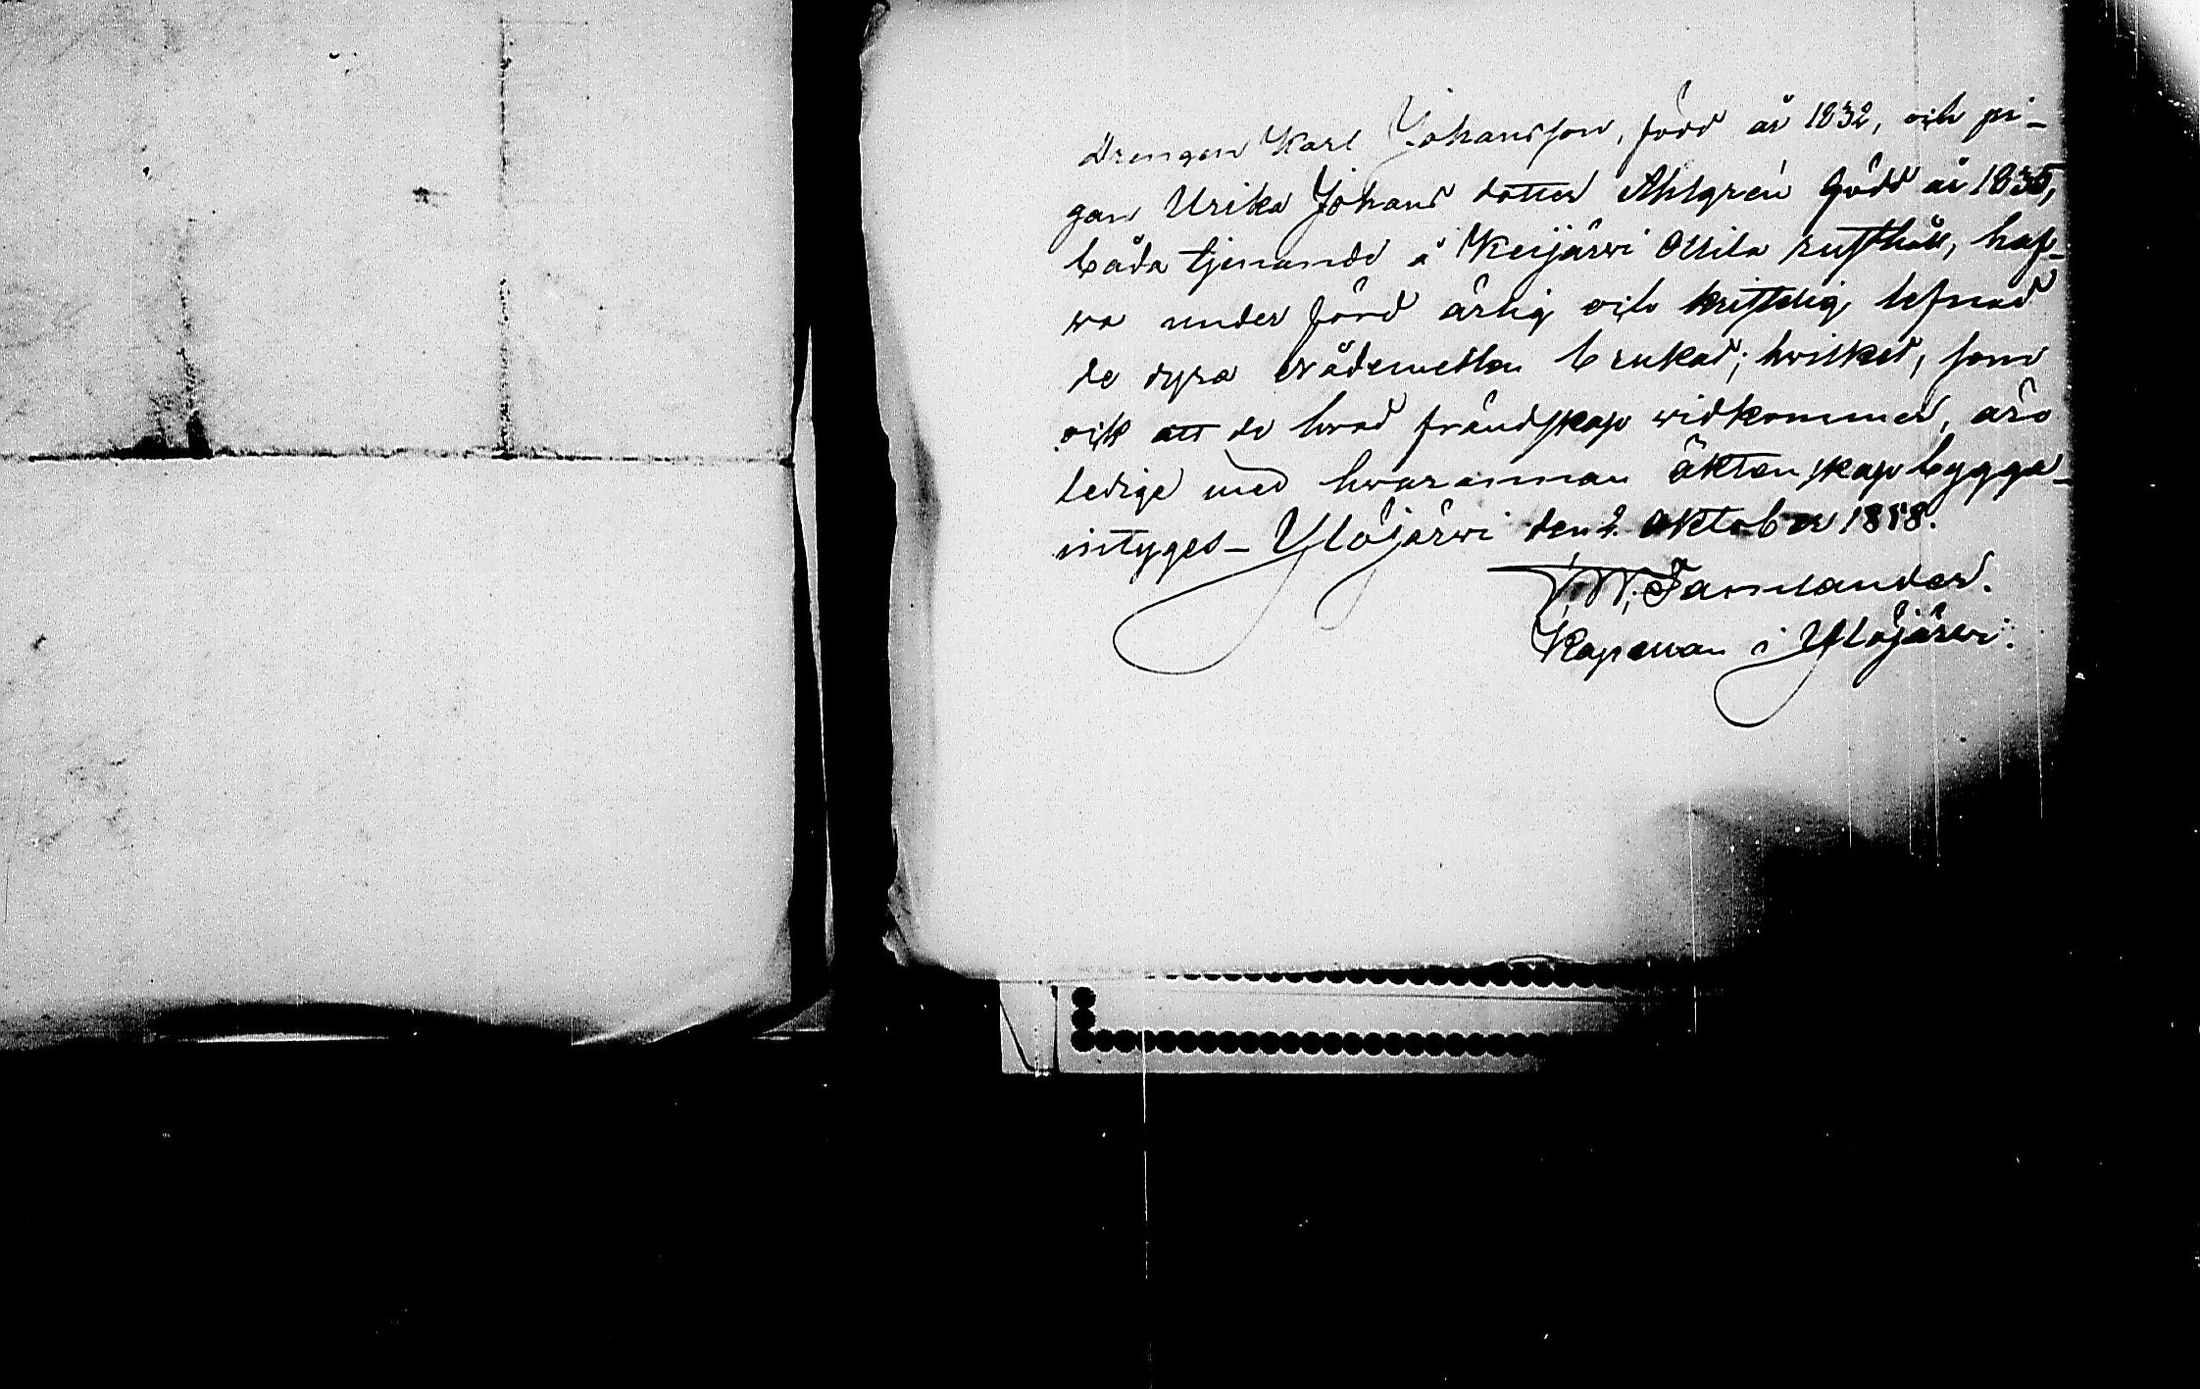 Drengen Karl Johansson, född år 1832, och pi-
gan Ulrika Johans dotter Ahlgrén född år 1835,
båda tjenande å Keijärwi Ollila rusthåll, haf-
wa under förd ärlig och kristelig lefnad
de dyra Nådemedlen brukat; hwilket, som
ock att de hwad frändskap widkommer, äro
ledige med hwarannan äktenskap bygga-
intyges- Ylöjärwi den 2. Oktober 1858.
F. W. Farmlander.
Kapellan i Ylöjärwi.